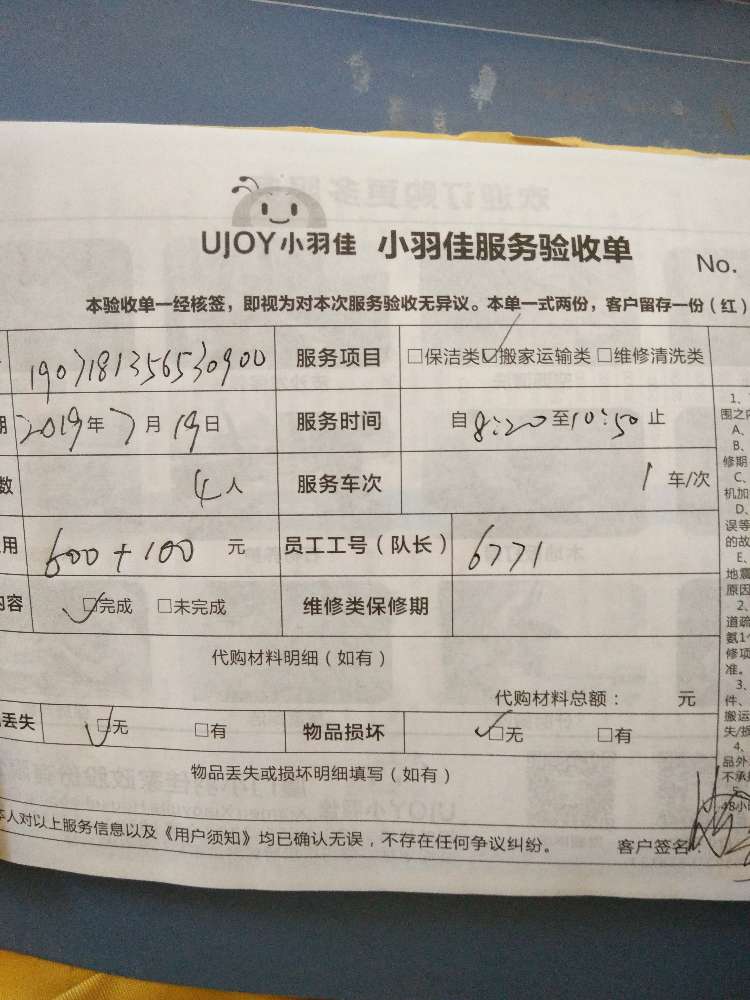 UJOY小羽佳 小羽佳服务验收单
No.
本验收单一经核签，即视为对本次服务验收无异议。本单一式两份，客户留存一份（红）
1907181356530900 服务项目 □保洁类☑搬家运输类 □维修清洗类
期 2019年7月19日 服务时间 自8:20至10:50止
数 4人 服务车次 1车/次
用 600+100 元 员工工号（队长） 6771
内容 ☑完成 □未完成 维修类保修期
代购材料明细（如有）
代购材料总额： 元
丢失 ☑无 □有 物品损坏 ☑无 □有
物品丢失或损坏明细填写（如有）
本人对以上服务信息以及《用户须知》均已确认无误，不存在任何争议纠纷。 客户签名：
1、
围之内
A、
B、
修期
C、
机加
D、
误等
的故
E、
地震
原因
2、
道疏
氨1个
修项
准。
3、
件、
搬运
失/损
4、
品外
不承
5、
48小